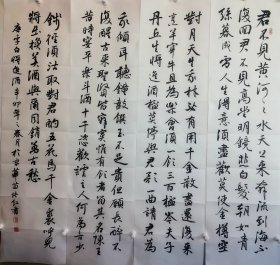 君不見黄河之水天上来奔流到海不
復回君不見高堂明鏡悲白髮朝如青
絲暮成雪人生得意須盡歡莫使金樽空
對月天生我材必有用千金散盡還復来
烹羊宰牛且為樂會須一飲三百杯岑夫子
丹丘生將進酒杯莫停與君歌一曲請君為
我傾耳聽鐘鼓饌玉不足貴但願長醉不
復醒古来聖賢皆寂寞惟有飲者留其名陳王
昔時宴平樂斗酒十千恣歡謔主人何為言少
錢徑須沽取對君酌五花馬千金裘呼兒
將出換美酒與爾同銷萬古愁
李白將進酒辛卯年春月於京華